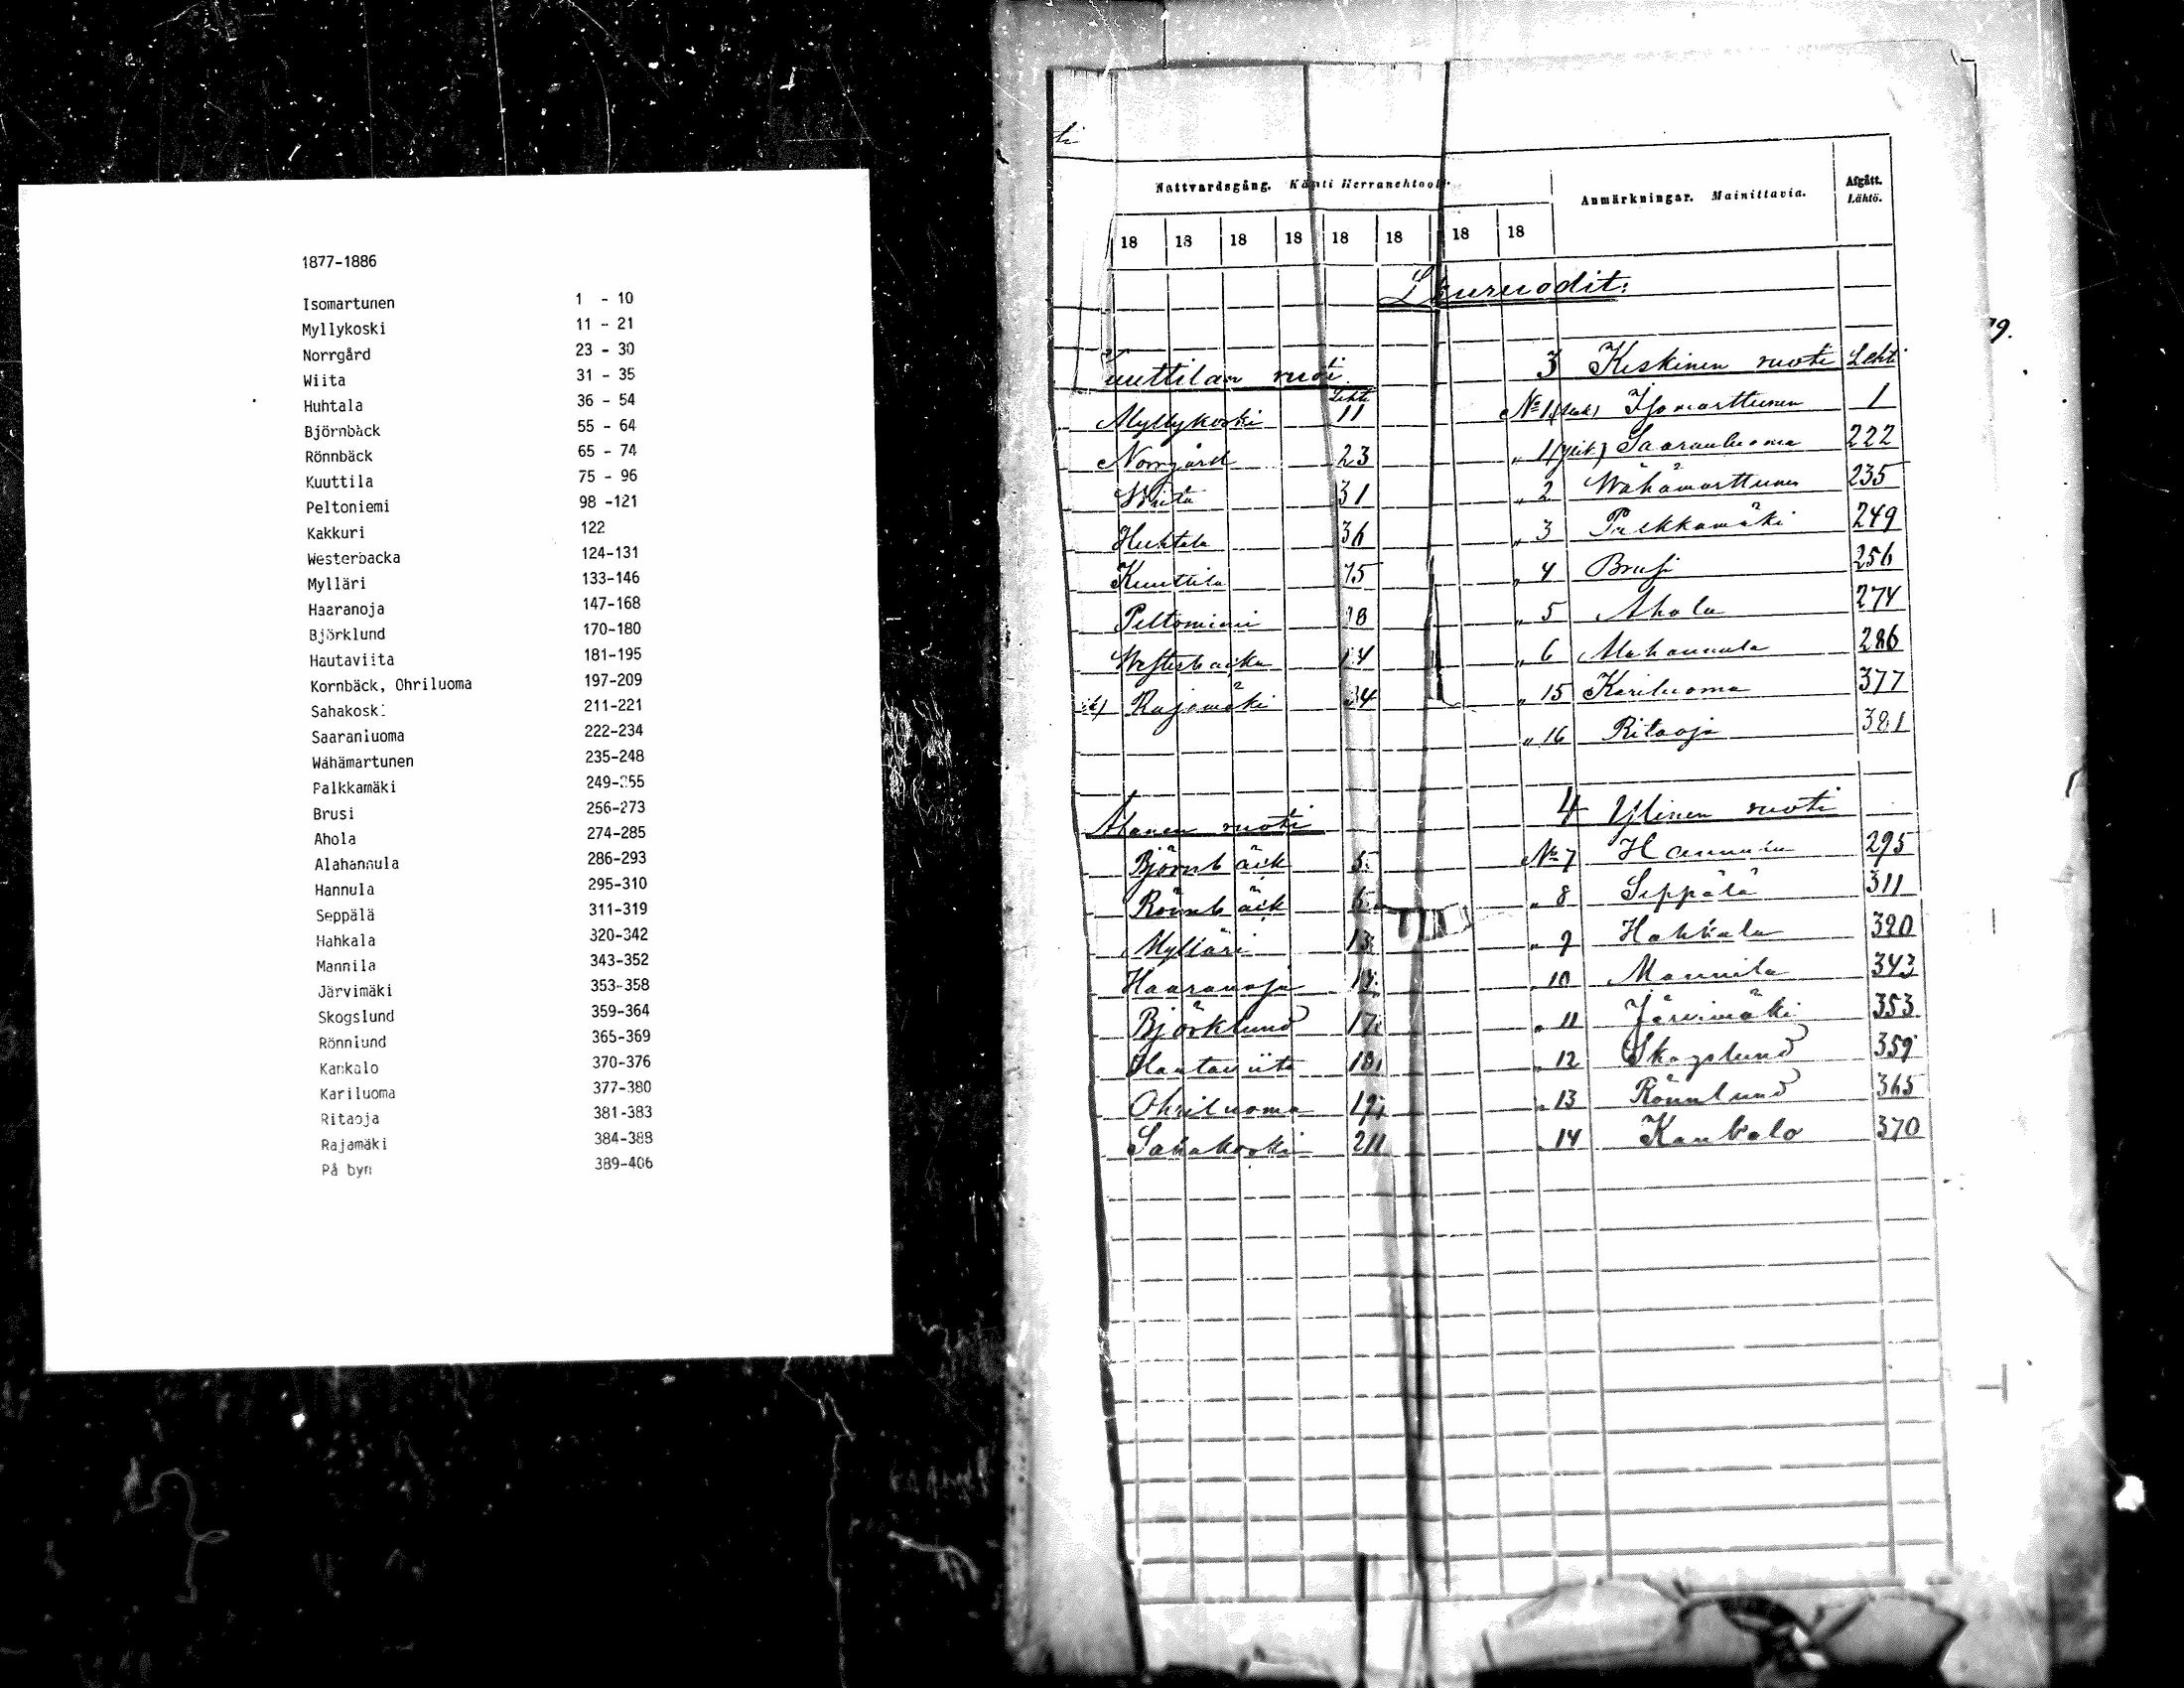 1877-1886
Isomartunen 1 - 10
Myllykoski 11 - 21
Norrgård 23 - 30
Wiita 31 - 35
Huhtala 36 - 54
Björnbäck 55 - 64
Rönnbäck 65 - 74
Kuuttila 75 - 96
Peltoniemi 98 -121
Kakkuri 122
Westerbacka 124-131
Mylläri 133-146
Haaranoja 147-168
Björklund 170-180
Hautaviita 181-195
Kornbäck, Ohriluoma 197-209
Sahakoski 211-221
Saaraniuoma 222-234
Wähämartunen 235-248
Palkkamäki 249-255
Brusi 256-273
Ahola 274-285
Alahannula 286-293
Hannula 295-310
Seppälä 311-319
Hahkala 320-342
Mannila 343-352
Järvimäki 353-358
Skogslund 359-364
Rönnlund 365-369
Kankalo 370-376
Kariluoma 377-380
Ritaoja 381-383
Rajamäki 384-388
På byn 389-406
Nattvardsgång. Käynti Herranehtool. Anmärkningar. Mainittavia. Afgått. Lähtö.
18 18 18 18 18 18 18 18
Lukuruodit:
Kuuttilan ruoti Lehti
Myllykoski 11
Norrgård 23
Wiita 31
Huhtala 36
Kuuttila 75
Peltoniemi 98
Westerbacka
Rajamäki
Alanen ruoti
Björnbäck
Rönnbäck
Mylläri
Haaranoja
Björklund
Hautaviita 181
Ohriluoma
Sahakoski 211
3 Keskinen ruoti Lehti
No 1 Isomarttunen 1
" 1 Saaranluoma 222
" 2 Wähämarttunen 235
" 3 Palkkamäki 249
" 4 Brusi 256
" 5 Ahola 274
" 6 Alahannula 286
" 15 Kariluoma 377
" 16 Ritaoja 381
4 Ylinen ruoti
No 7 Hannula 295
" 8 Seppälä 311
" 9 Hahkala 320
" 10 Mannila 343
" 11 Järvimäki 353
" 12 Skogslund 359
" 13 Rönnlund 365
" 14 Kankalo 370
79.